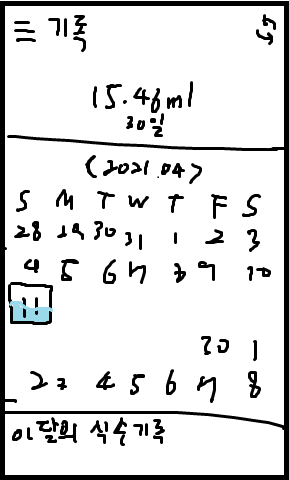 기록
15.46ml
30일
<2021.04>
S M T W T F S
28 29 30 31 1 2 3
4 5 6 7 8 9 10
11
30 1
2 3 4 5 6 7 8
이달의 식수기록